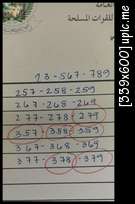 للقوات المسلحة
13-567-789
257-258-259
267-268-269
277-278-279
357-358-359
367-368-369
377-378-379
[339x600] upic.me